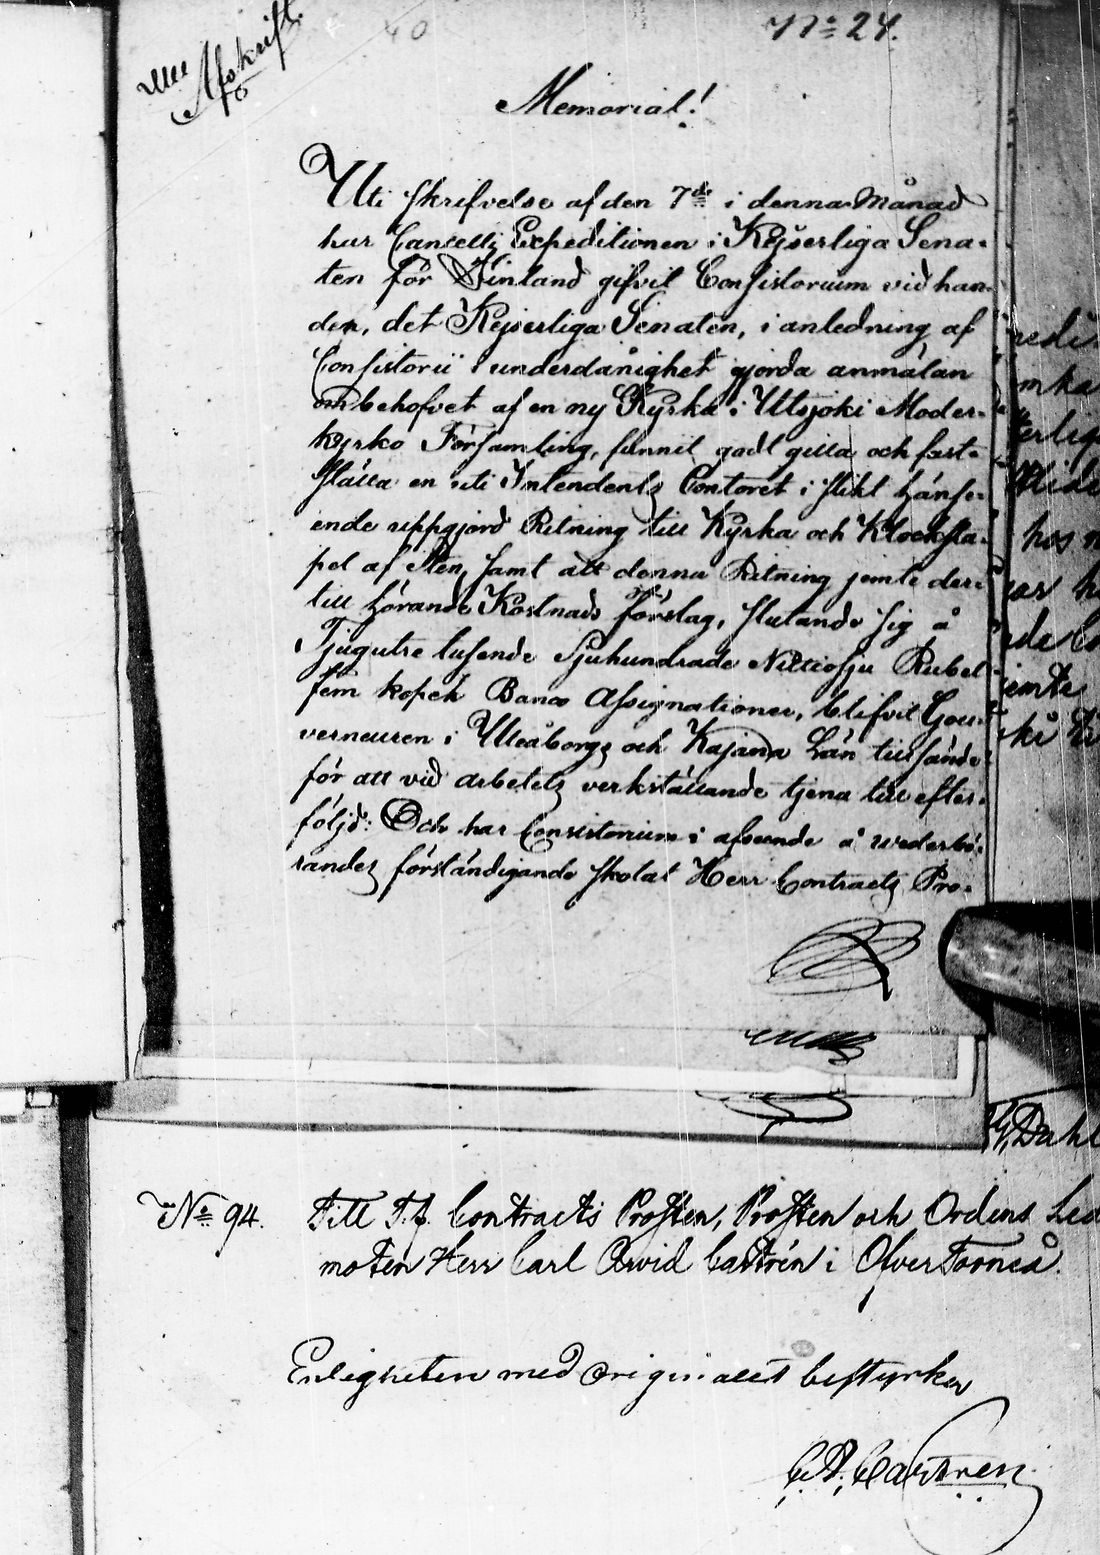 Afskrift.
40
No 24.
Memorial!
Uti skrifvelse af den 7de i denna Månad
har Cancelly Expeditionen i Kejserliga Sena-
ten för Finland gifvit Consistorium vid han-
den, det Kejserliga Senaten, i anledning af
Consistorii i underdånighet gjorda anmälan
om behofvet af en ny Kyrka i Utsjoki Moder-
kyrko Församling, funnit godt gilla och fast-
ställa en uti Intendents Contoret i slikt hänse-
ende uppgjord Ritning till Kyrka och Klocksta-
pel af Sten, samt att denna Ritning jemte der-
till hörande Kostnads förslag, slutande sig å
Tjugutre tusende Sjuhundrade Nittiosju Rubel
fem kopek Banco Assignationer, blifvit Gou-
verneuren i Uleåborgs och Kajana Län tillsände
för att vid arbetets verkställande tjena till efter-
följd: Och har Consistorium i afseende å wederbö-
randes förständigande skolat Herr Contracts Pro-
redi
mka
erlig
hos
ar
jemte
Dahl
No 94.
Till T.f. Contracts Prosten, Prosten och Ordens Led
moten Herr Carl Arvid Castrén i Öfver Torneå.
Enligheten med originalet bestyrker
C. A. Castren